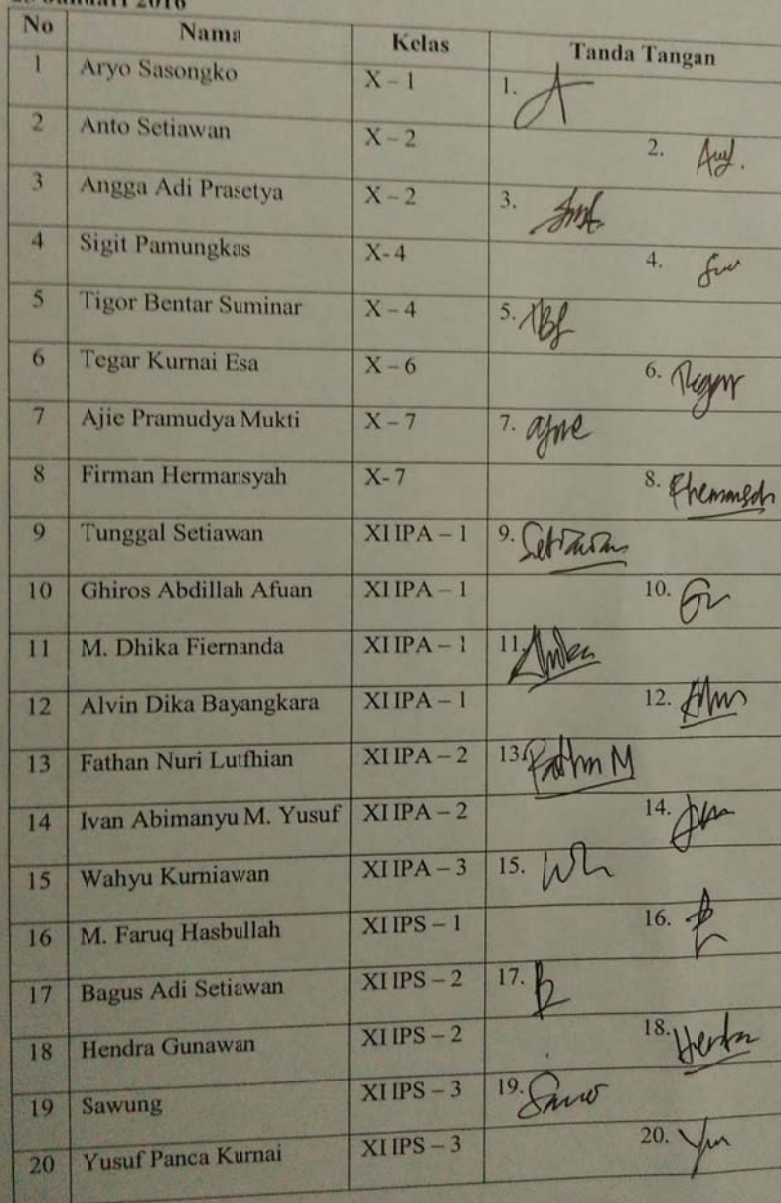 Januari 2016
No Nama Kelas Tanda Tangan
1 Aryo Sasongko X – 1 1.
2 Anto Setiawan X – 2 2.
3 Angga Adi Prasetya X – 2 3.
4 Sigit Pamungkas X- 4 4.
5 Tigor Bentar Suminar X – 4 5. TBS
6 Tegar Kurnai Esa X – 6 6.
7 Ajie Pramudya Mukti X – 7 7. ajie
8 Firman Hermansyah X- 7 8.
9 Tunggal Setiawan XI IPA – 1 9. Setiawan
10 Ghiros Abdillah Afuan XI IPA – 1 10.
11 M. Dhika Fiernanda XI IPA – 1 11.
12 Alvin Dika Bayangkara XI IPA – 1 12.
13 Fathan Nuri Lutfhian XI IPA – 2 13.
14 Ivan Abimanyu M. Yusuf XI IPA – 2 14.
15 Wahyu Kurniawan XI IPA – 3 15.
16 M. Faruq Hasbullah XI IPS – 1 16.
17 Bagus Adi Setiawan XI IPS – 2 17.
18 Hendra Gunawan XI IPS – 2 18.
19 Sawung XI IPS – 3 19.
20 Yusuf Panca Kurnai XI IPS – 3 20.